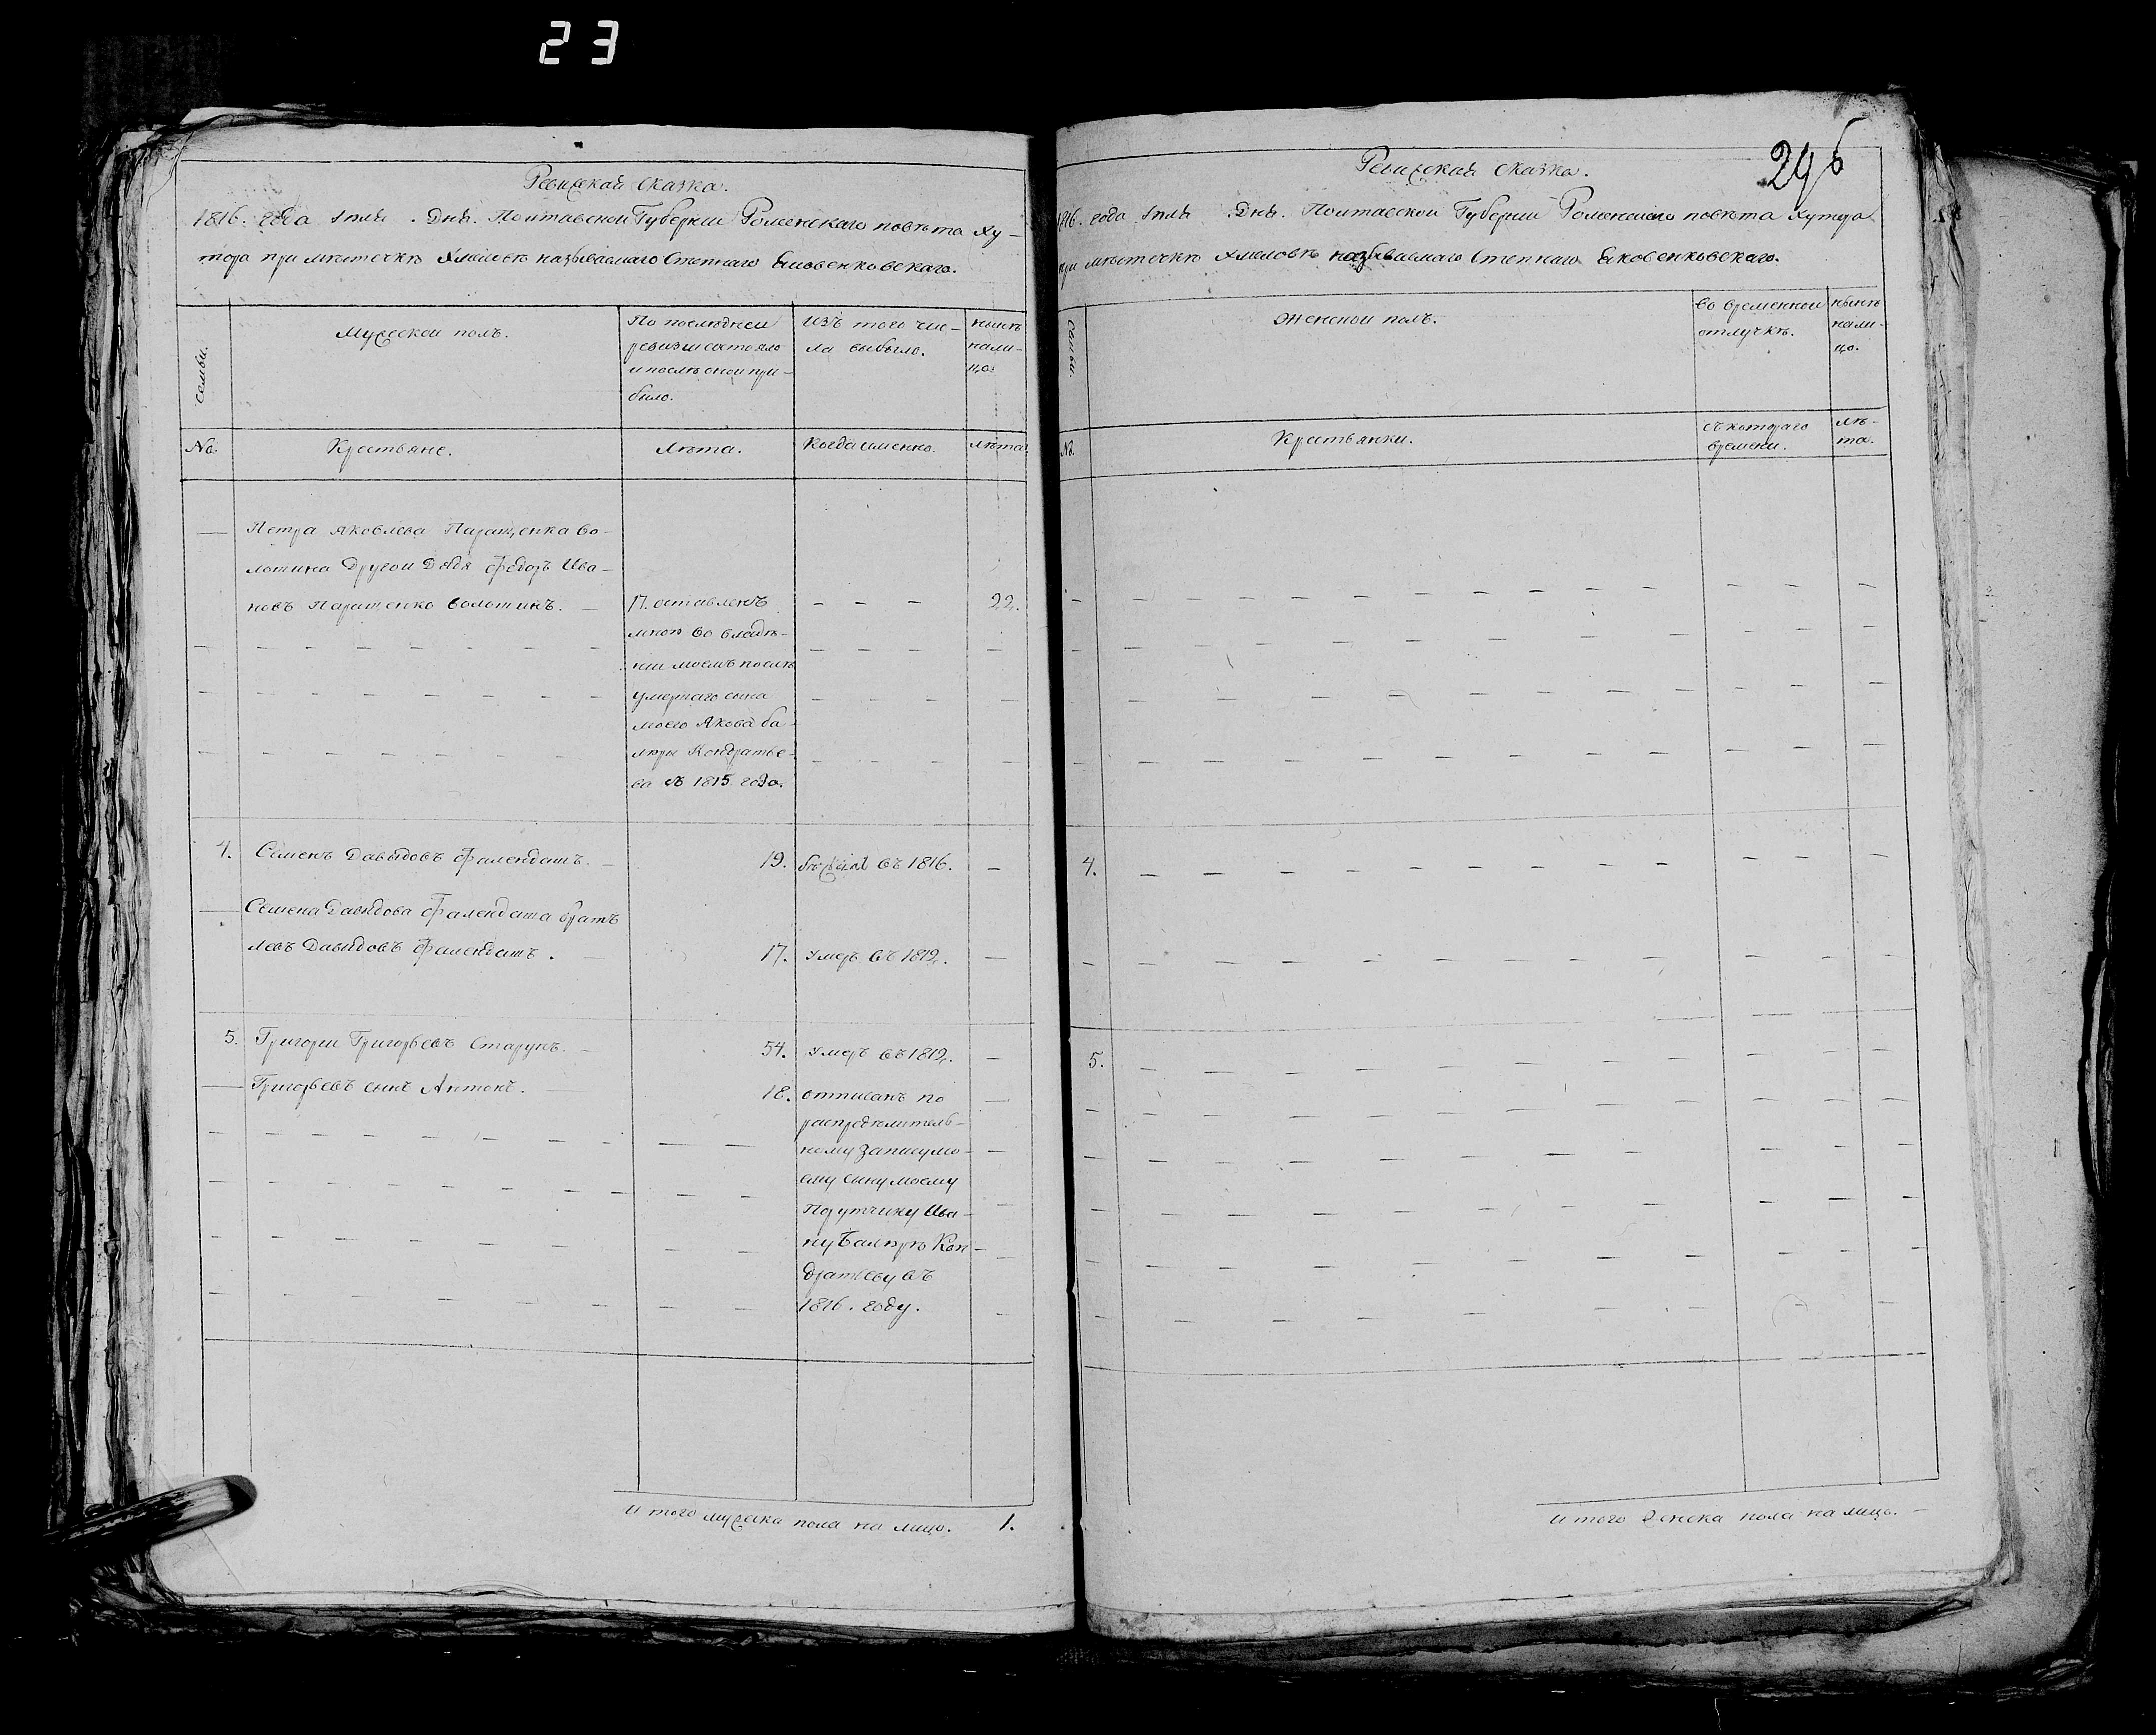 23
Ревижская сказка.
1816. года Iюля . Дня. Полтавской Губернии Роменскаго повѣта Ху-
тора при мѣстечкѣ Хмѣловѣ называемаго Степнаго Яковенковскаго.
семьи.
Мужескои полъ.
По последнеи
ревизии состояло
и послѣ онои при-
было.
Изъ того чис-
ла выбыло.
нынѣ
нали-
цо.
No.
Крестьяне.
лѣта.
Когда именно.
лѣта.
— Петра Яковлева Паращенка во-
лошина другои дядя Федоръ Ива-
новъ Паращенко волошинъ. —
17. оставленъ
мною во владѣ-
нии моемъ послѣ
умершаго сына
моего Якова ба-
люры Кондратье-
ва съ 1815 года.
— — —
22.
4. Семенъ Давыдовъ Фалендашъ. —
19.
бѣжалъ въ 1816.
—
— Семена Давыдова Фалендаша братъ
левъ Давыдовъ Фалендашъ. —
17.
умеръ въ 1812.
—
5. Григории Григорьевъ Старунъ. —
54.
умеръ въ 1812.
—
— Григорьевъ сынъ Антонъ.
18.
отписанъ по
распредѣлитель-
ному запису мо-
ему сыну моему
Порутчику Ива-
ну Балюрѣ Кон-
дратьеву въ
1816. году.
И того мужеска пола на лицо. 1.
Ревижская сказка.
1816. года Iюля . Дня. Полтавской Губернии Роменскаго повѣта Хутора
при мѣстечкѣ Хмѣловѣ называемаго Степнаго Яковенковскаго.
семьи.
Женскои полъ.
Во временнои
отлучкѣ.
нынѣ
нали-
цо.
No.
Крестьянки.
съ котораго
времени.
лѣ-
та.
4.
5.
И того женска пола на лицо. —